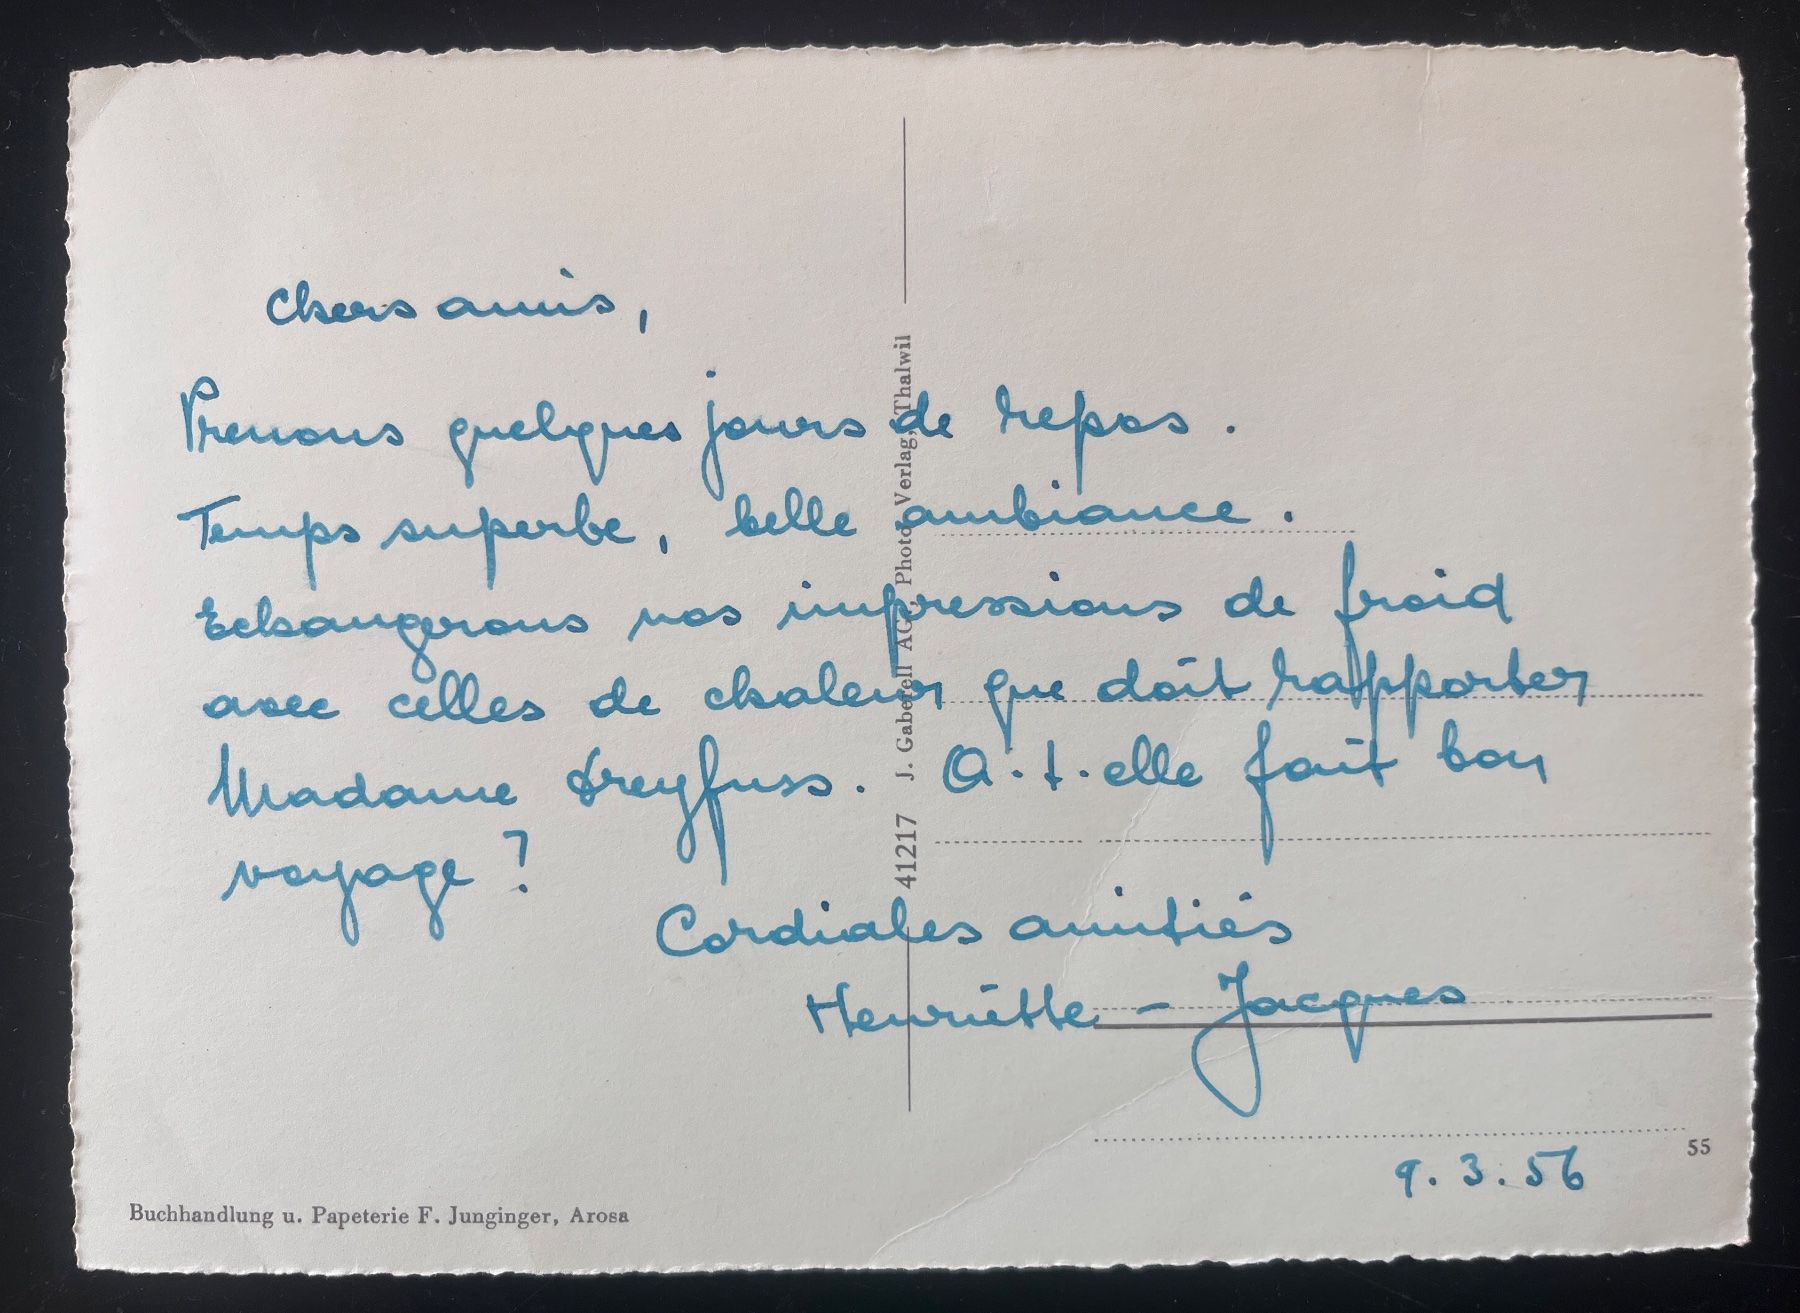 Chers amis,
Prenons quelques jours de repos.
Temps superbe, belle ambiance.
Echangerons nos impressions de froid
avec celles de chaleur que doit rapporter
Madame Dreyfuss. A-t-elle fait bon
voyage ?
Cordiales amitiés
Henriette - Jacques
9.3.56
41217 J. Gaberell AG., Photo Verlag, Thalwil
55
Buchhandlung u. Papeterie F. Junginger, Arosa